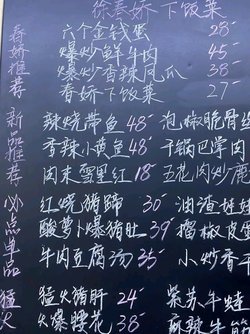 徐春娇下饭菜
春娇推荐
六个金钱蛋 28
爆炒鲜牛肉 45
爆炒香辣凤爪 38
春娇下饭菜 27
新品推荐
辣烧带鱼 48 泡椒脆骨
香辣小黄鱼 48 干锅巴掌肉
肉末雪里红 18 五花肉炒
必点单品
红烧猪蹄 30 油渣娃娃
酸萝卜爆猪肚 39 擂椒皮蛋
牛肉豆腐汤 35 小炒香干
猛火
猛火猪肝 24 紫苏牛蛙
火爆腰花 38 麻辣牛